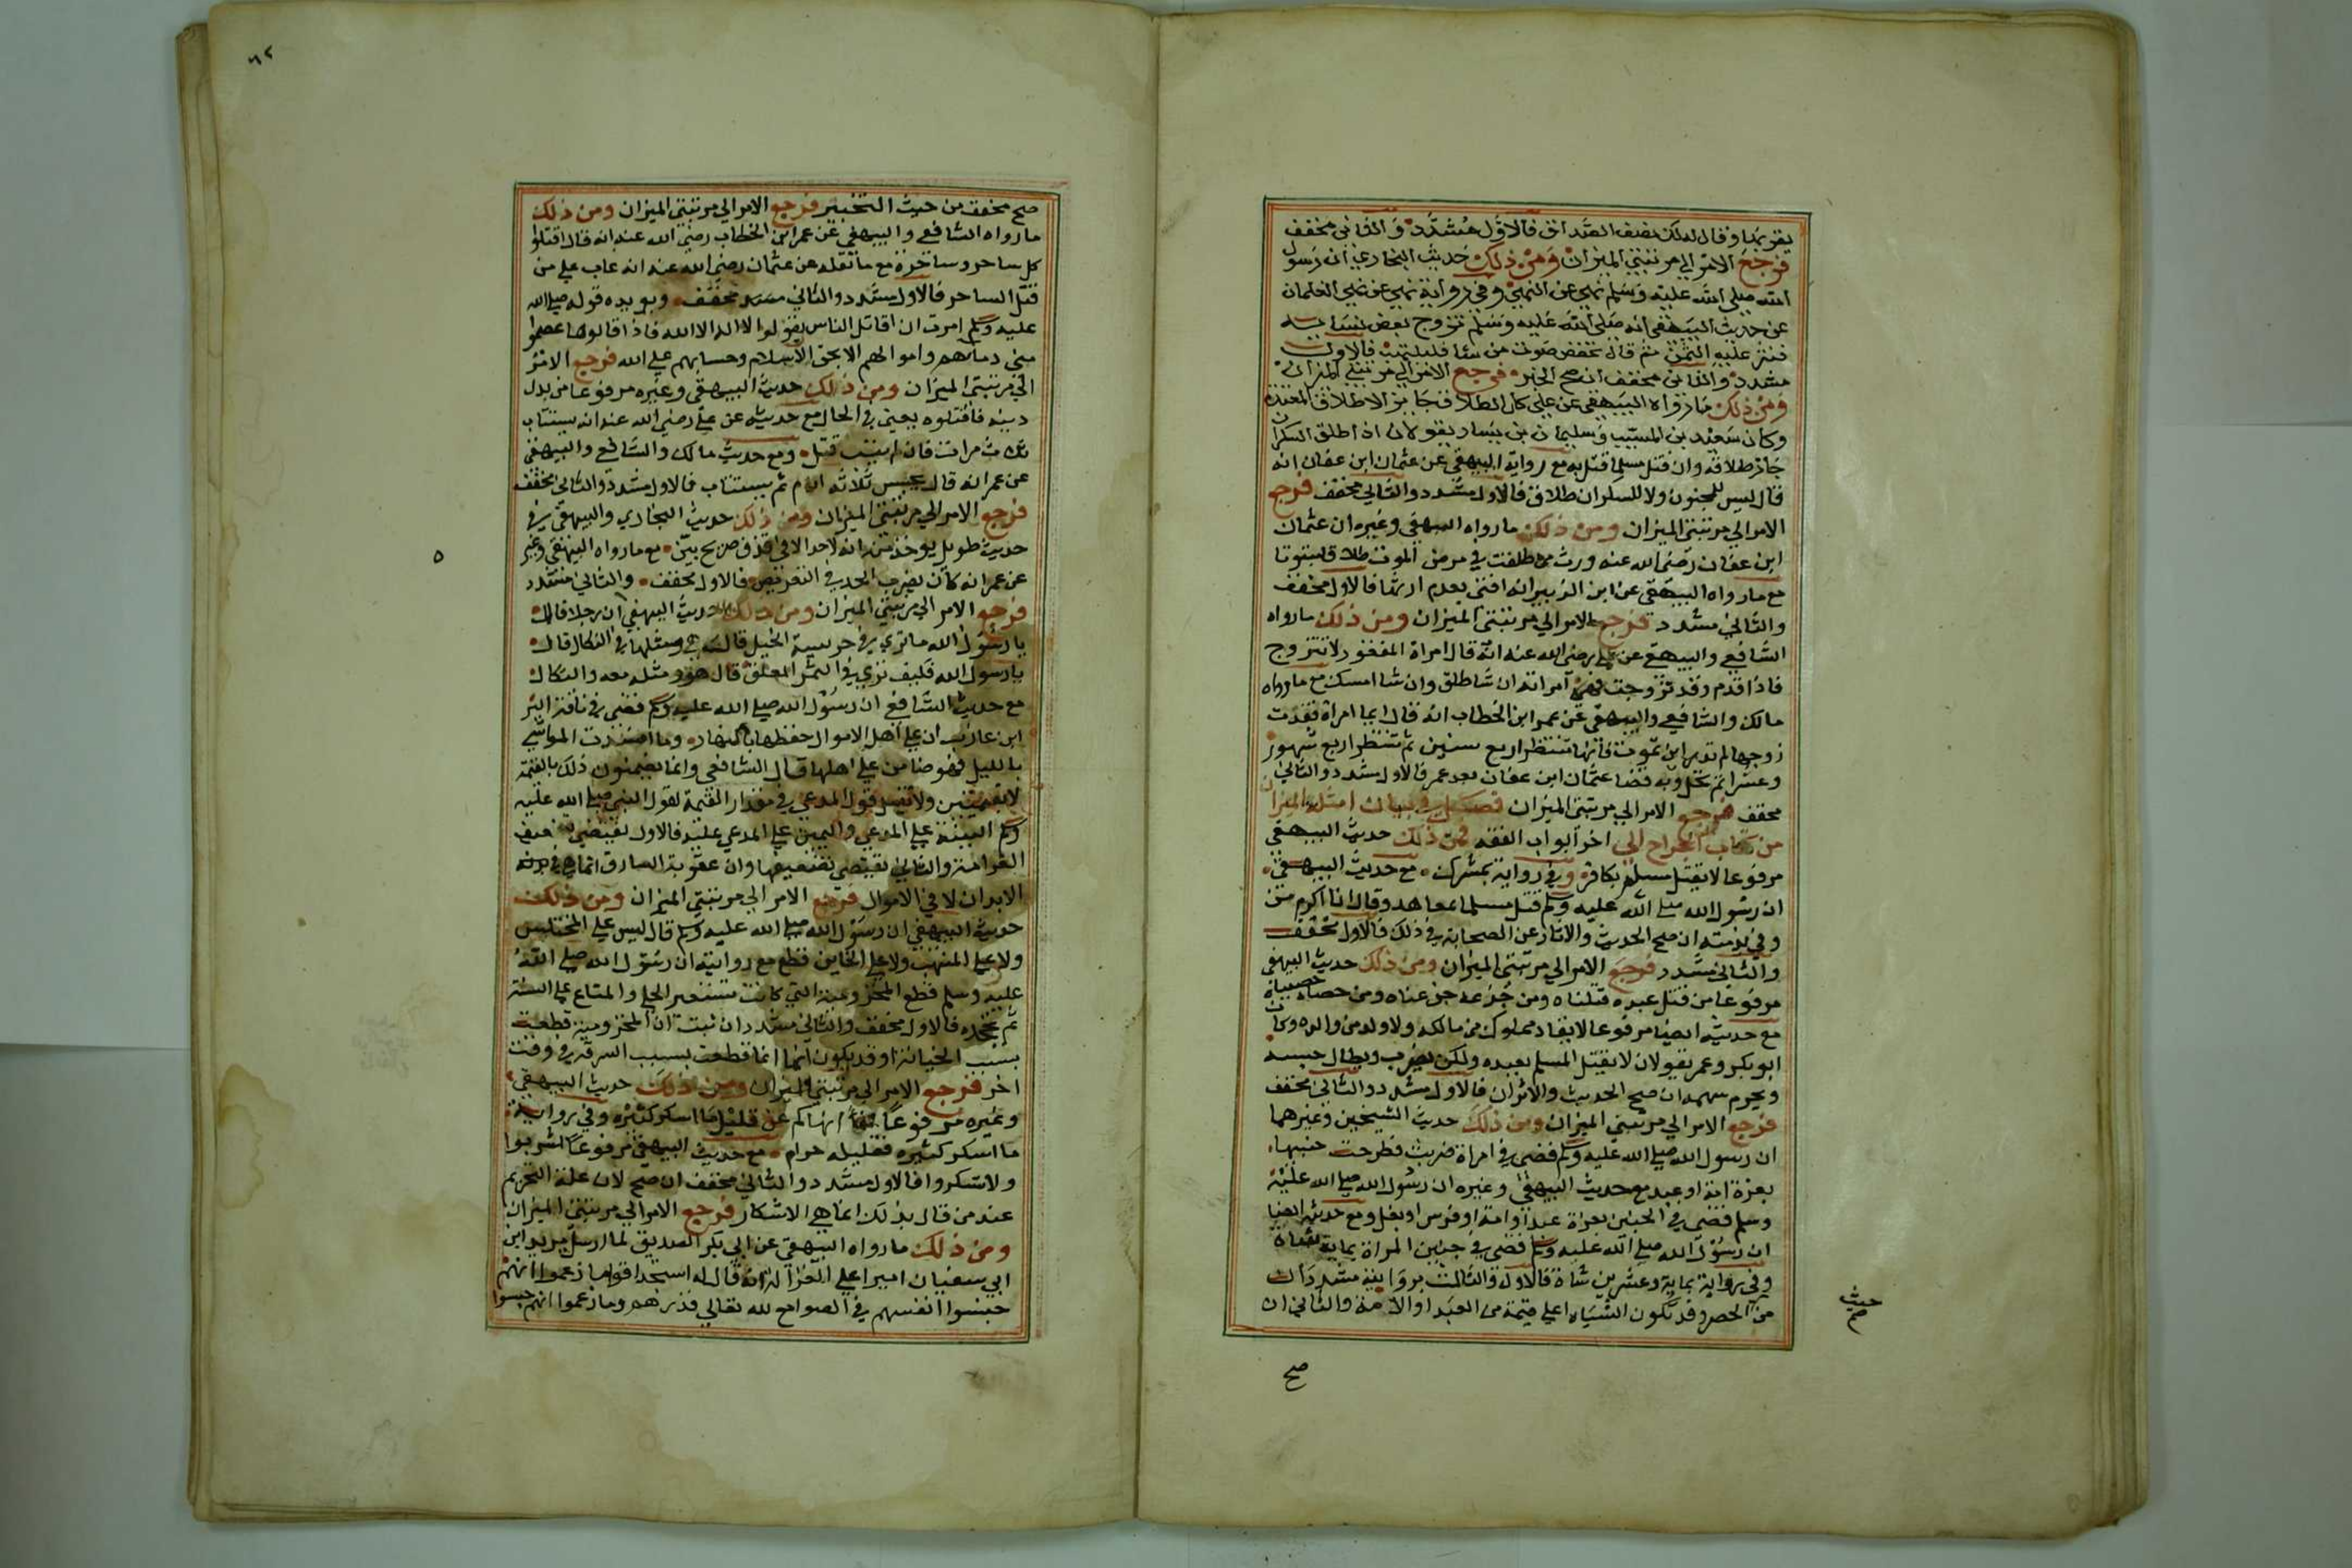 يقربها وقال لها لك نصف الصداق فالاول مشدد والثاني مخفف
فرجع الامر الي مرتبتي الميزان ومن ذلك حديث البخاري ان رسول
الله صلي الله عليه وسلم نهي عن النهبي وفي رواية نهي عن نهبي الغلمان
عن حديث البيهقي انه صلي الله عليه وسلم تزوج بعض نسايه
فنثر عليه التمر ثم قال تخفض صوت من شا فلينتهب فالاول
مشدد والثاني مخفف ان صح الخبر فرجع الامر الي مرتبتي الميزان
ومن ذلك ما رواه البيهقي عن علي كل الطلاق جايز الا طلاق المعتوه
وكان سعيد بن المسيب وسليمان بن يسار يقولان اذا طلق السكران
جاز طلاقه وان قتل مسلما قتل به مع رواية البيهقي عن عثمان ابن عفان انه
قال ليس للمجنون ولا للسكران طلاق فالاول مشدد والثاني مخفف فرجع
الامر الي مرتبتي الميزان ومن ذلك ما رواه البيهقي وغيره ان عثمان
ابن عفان رضي الله عنه ورث من طلقت في مرض الموت طلاقا مبتوتا
مع ما رواه البيهقي عن ابن الزبير انه افتي بعدم ارثها فالاول مخفف
والثاني مشدد فرجع الامر الي مرتبتي الميزان ومن ذلك ما رواه
الشافعي والبيهقي عن علي رضي الله عنه انه قال امراة المفقود لا تتزوج
فاذا قدم وقد تزوجت فهي امراته ان شا طلق وان شا امسك مع ما رواه
مالك والشافعي والبيهقي عن عمر ابن الخطاب انه قال ايما امراة فقدت
زوجها لم تدر اين هو فانها تنتظر اربع سنين ثم تنتظر اربع شهور
وعشرا ثم تحل وبه قضا عثمان ابن عفان بعد عمر فالاول مشدد والثاني
مخفف فرجع الامر الي مرتبتي الميزان فصل في بيان امثلة الميزان
من كتاب الجراح الي اخر ابواب الفقه فمن ذلك حديث البيهقي
مرفوعا لا يقتل مسلم بكافر وفي رواية بمشرك مع حديث البيهقي
ان رسول الله صلي الله عليه وسلم قتل مسلما بمعاهد وقال انا اكرم من
وفي بذمته ان صح الحديث والاثار عن الصحابة في ذلك فالاول مخفف
والثاني مشدد فرجع الامر الي مرتبتي الميزان ومن ذلك حديث البيهقي
مرفوعا من قتل عبده قتلناه ومن جدعه جدعناه ومن خصاه خصيناه
مع حديثه ايضا مرفوعا لا يقاد مملوك من مالكه ولا ولد من والده وكان
ابو بكر وعمر يقولان لا يقتل المسلم بعبده ولكن يضرب ويطال حبسه
ويحرم سهمه ان صح الحديث والاثران فالاول مشدد والثاني مخفف
فرجع الامر الي مرتبتي الميزان ومن ذلك حديث الشيخين وغيرهما
ان رسول الله صلي الله عليه وسلم قضي في امراة ضربت فطرحت جنينها
بغرة امة او عبد مع حديث البيهقي وغيره ان رسول الله صلي الله عليه
وسلم قضي في الجنين بغراة عبد او امة او فرس او بغل ومع حديثه ايضا
ان رسول الله صلي الله عليه وسلم قضي في جنين المراة بماية شاة
وفي رواية بماية وعشرين شاة فالاول والثالث بروايتيه مشددان
من الحصر وقد تكون الشياه اعلي قيمة من العبد او الامة والثاني ان
حيث
صح
صح
٦٢
صح مخفف من حيث التخيير فرجع الامر الي مرتبتي الميزان ومن ذلك
ما رواه الشافعي والبيهقي عن عمر ابن الخطاب رضي الله عنه انه قال اقتلوا
كل ساحر وساحرة مع ما نقله عن عثمان رضي الله عنه انه عاب علي من
قتل الساحر فالاول مشدد والثاني مخفف ويويده قوله صلي الله
عليه وسلم امرت ان اقاتل الناس يقولوا لا اله الا الله فاذا قالوها عصموا
مني دماهم واموالهم الا بحق الاسلام وحسابهم علي الله فرجع الامر
الي مرتبتي الميزان ومن ذلك حديث البيهقي وغيره مرفوعا من بدل
دينه فاقتلوه يعني في الحال مع حديثه عن علي رضي الله عنه انه يستتاب
ثلاث مرات فان لم يتب قتل ومع حديث مالك والشافعي والبيهقي
عن عمر انه قال يحبس ثلاثة ايام ثم يستتاب فالاول مشدد والثاني مخفف
فرجع الامر الي مرتبتي الميزان ومن ذلك حديث البخاري والبيهقي في
حديث طويل يوخذ منه انه لا حد الا في قذف صريح بين مع ما رواه البيهقي وغيره
عن عمر انه كان يضرب الحد في التعريض فالاول مخفف والثاني مشدد
فرجع الامر الي مرتبتي الميزان ومن ذلك حديث البيهقي ان رجلا قال
يا رسول الله ما تري في حريسة الخيل قال هي ومثلها في النكال قال
يا رسول الله فكيف تري في الثمر المعلق قال هو ومثله معه والنكال
مع حديث الشافعي ان رسول الله صلي الله عليه وسلم قضي في ناقة البر
ابن عازب ان علي اهل الاموال حفظها بالنهار وما افسدت المواشي
بالليل فهو ضامن علي اهلها قال الشافعي وانما يضمنون ذلك بالقيمة
لا بقيمتين ولا قبل قول المدعي في مقدار القيمة لقول النبي صلي الله عليه
وسلم البينة علي المدعي واليمين علي المدعي عليه فالاول يقتضي تضعيف
الغرامة والثاني يقتضي تضعيفها وان عقوبة السارق انما هي في
الابدان لا في الاموال فرجع الامر الي مرتبتي الميزان ومن ذلك
حديث البيهقي ان رسول الله صلي الله عليه وسلم قال ليس علي المختلس
ولا علي المنتهب ولا علي الخاين قطع مع روايته ان رسول الله صلي الله
عليه وسلم قطع المخزومية التي كانت تستعير الحلي والمتاع علي السنة
ثم تجحده فالاول مخفف والثاني مشدد ان ثبت ان المخزومية قطعت
بسبب الخيانة وقد يكون انها انما قطعت بسبب السرقة في وقت
اخر فرجع الامر الي مرتبتي الميزان ومن ذلك حديث البيهقي
وغيره مرفوعا انهاكم عن قليل ما اسكر كثيره وفي رواية
ما اسكر كثيره فقليله حرام مع حديث البيهقي مرفوعا اشربوا
ولا تسكروا فالاول مشدد والثاني مخفف ان صح لان علة التحريم
عند من قال بذلك انما هي الاسكار فرجع الامر الي مرتبتي الميزان
ومن ذلك ما رواه البيهقي عن ابي بكر الصديق لما ارسل يزيد ابن
ابي سفيان اميرا علي الغزاة انه قال له استجد اقواما زعموا انهم
حبسوا انفسهم في الصوامع لله تعالي فذرهم وما زعموا انهم حبسوا